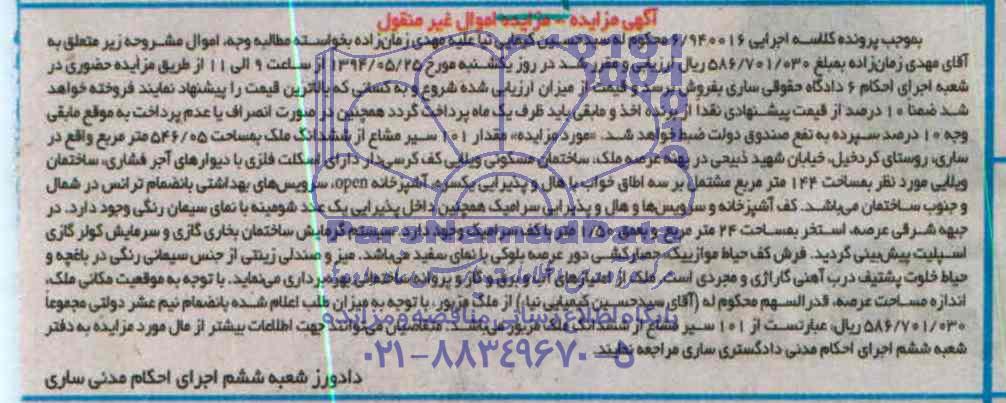 آگهی مزایده - مزایده اموال غیر منقول
بموجب پرونده کلاسه اجرایی ۶/۹۴۰۰۱۶ محکوم له سید حسین کیمیایی نیا علیه مهدی زمان‌زاده بخواسته مطالبه وجه، اموال مشروحه زیر متعلق به
آقای مهدی زمان‌زاده بمبلغ ۵۸۶/۷۰۱/۰۳۰ ریال ارزیابی و مقرر شد در روز یکشنبه مورخ ۱۳۹۴/۰۵/۲۵ از ساعت ۹ الی ۱۱ از طریق مزایده حضوری در
شعبه اجرای احکام ۶ دادگاه حقوقی ساری بفروش برسد و قیمت از میزان ارزیابی شده شروع و به کسانی که بالاترین قیمت را پیشنهاد نمایند فروخته خواهد
شد ضمنا ۱۰ درصد از قیمت پیشنهادی نقدا از برنده اخذ و مابقی باید ظرف یک ماه پرداخت گردد همچنین در صورت انصراف یا عدم پرداخت به موقع مابقی
وجه ۱۰ درصد سپرده به نفع صندوق دولت ضبط خواهد شد. «مورد مزایده» مقدار ۱۰۱ سیر مشاع از ششدانگ ملک بمساحت ۵۴۶/۰۵ متر مربع واقع در
ساری، روستای کردخیل، خیابان شهید ذبیحی در پهنه عرصه ملک، ساختمان مسکونی ویلایی کف کرسی‌دار دارای اسکلت فلزی با دیوارهای آجر فشاری، ساختمان
ویلایی مورد نظر بمساحت ۱۴۴ متر مربع مشتمل بر سه اطاق خواب با هال و پذیرایی یکسره، آشپزخانه open، سرویس‌های بهداشتی بانضمام تراس در شمال
و جنوب ساختمان می‌باشد. کف آشپزخانه و سرویس‌ها و هال و پذیرایی سرامیک همچنین داخل پذیرایی یک عدد شومینه با نمای سیمان رنگی وجود دارد. در
جبهه شرقی عرصه، استخر بمساحت ۲۴ متر مربع و بعمق ۱/۵۰ متر با کف سرامیک وجود دارد. سیستم گرمایش ساختمان بخاری گازی و سرمایش کولر گازی
اسپلیت پیش‌بینی گردید. فرش کف حیاط موزاییک، حصارکشی دور عرصه بلوکی با نمای سفید می‌باشد. میز و صندلی زینتی از جنس سیمانی رنگی در باغچه و
حیاط خلوت پشتیف درب آهنی کاراژی و مجردی است. ملک از امتیازهای آب و برق و گاز و پروانه ساختمانی بهره‌برداری می‌نماید. با توجه به موقعیت مکانی ملک،
اندازه مساحت عرصه، قدرالسهم محکوم له (آقای سیدحسین کیمیایی نیا،) از ملک مزبور، با توجه به میزان طلب اعلام شده بانضمام نیم عشر دولتی مجموعاً
۵۸۶/۷۰۱/۰۳۰ ریال، عبارتست از ۱۰۱ سیر مشاع از ششدانگ ملک مزبور می‌باشد. متقاضیان می‌توانند جهت اطلاعات بیشتر از مال مورد مزایده به دفتر
شعبه ششم اجرای احکام مدنی دادگستری ساری مراجعه نمایند
دادورز شعبه ششم اجرای احکام مدنی ساری
ParsNamadData
پایگاه اطلاع رسانی مناقصه و مزایده
۰۲۱-۸۸۳۴۹۶۷۰-۵